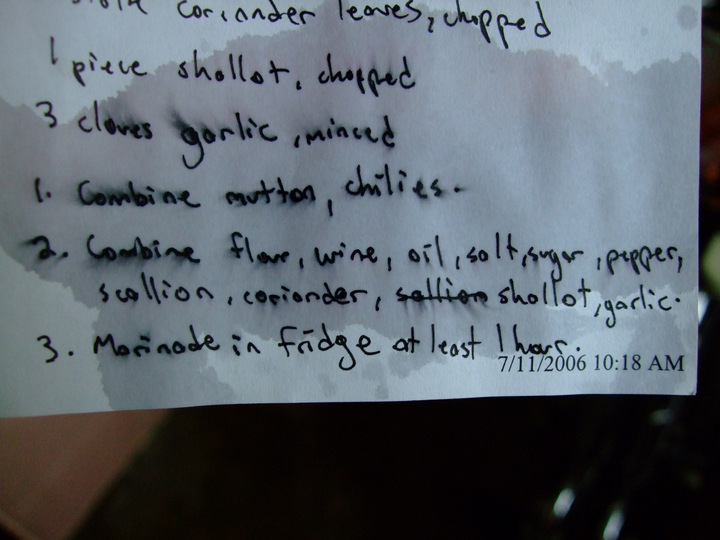 coriander leaves, chopped
1 piece shallot, chopped
3 cloves garlic, minced
1. Combine mutton, chilies.
2. Combine flour, wine, oil, salt, sugar, pepper,
scallion, coriander, scallion shallot, garlic.
3. Marinade in fridge at least 1 hour.
7/11/2006 10:18 AM